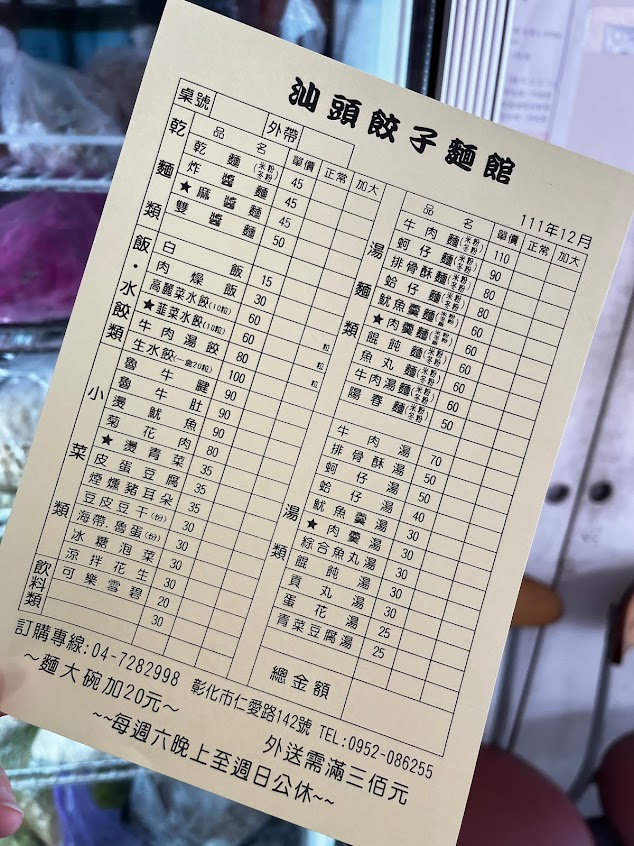 汕頭餃子麵館
111年12月
桌號 外帶
乾麵類
品名 單價 正常 加大
乾麵(米粉 冬粉) 45
炸醬麵 45
★麻醬麵 45
雙醬麵 50
飯・水餃類
白飯 15
肉燥飯 30
高麗菜水餃(10粒) 60
★韭菜水餃(10粒) 60
牛肉湯餃 80 粒
生水餃(一盒20粒) 100 粒
小菜類
魯牛腱 90
魯牛肚 90
燙魷魚 90
菊花肉 80
★燙青菜 35
皮蛋豆腐 35
煙燻豬耳朵 35
豆皮豆干(份) 30
海帶.魯蛋(份) 30
冰糖泡菜 30
涼拌花生 20
飲料類
可樂雪碧 30
湯麵類
品名 單價 正常 加大
牛肉麵(米粉 冬粉) 110
蚵仔麵(米粉 冬粉) 90
排骨酥麵(米粉 冬粉) 80
蛤仔麵(米粉 冬粉) 80
魷魚羹麵(米粉 冬粉) 60
★肉羹麵(米粉 冬粉) 60
餛飩麵(米粉 冬粉) 60
魚丸麵(米粉 冬粉) 60
牛肉湯麵(米粉 冬粉) 60
陽春麵(米粉 冬粉) 50
湯類
牛肉湯 70
排骨酥湯 50
蚵仔湯 50
蛤仔湯 40
魷魚羹湯 30
★肉羹湯 30
綜合魚丸湯 30
餛飩湯 30
貢丸湯 30
蛋花湯 25
青菜豆腐湯 25
總金額
訂購專線:04-7282998 彰化市仁愛路142號 TEL:0952-086255
～麵大碗加20元～ 外送需滿三佰元
~~每週六晚上至週日公休~~